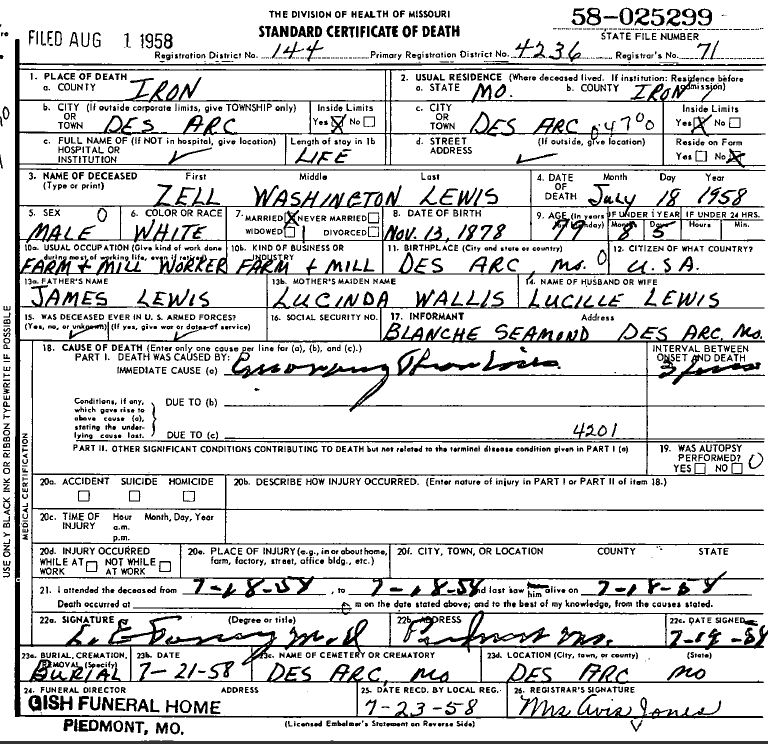 THE DIVISION OF HEALTH OF MISSOURI
58-025299
FILED AUG 1 1958
STANDARD CERTIFICATE OF DEATH
STATE FILE NUMBER
Registration District No. 144 Primary Registration District No. 4236 Registrar's No. 71
1. PLACE OF DEATH
a. COUNTY IRON
2. USUAL RESIDENCE (Where deceased lived. If institution: Residence before admission)
a. STATE MO. b. COUNTY IRON
b. CITY (If outside corporate limits, give TOWNSHIP only) Inside Limits
OR TOWN DES ARC Yes X No
c. CITY Inside Limits
OR TOWN DES ARC 04700 Yes X No
c. FULL NAME OF (If NOT in hospital, give location) Length of stay in 1b
HOSPITAL OR INSTITUTION LIFE
d. STREET ADDRESS (If outside, give location) Reside on Farm
Yes No X
3. NAME OF DECEASED First Middle Last
(Type or print) ZELL WASHINGTON LEWIS
4. DATE OF DEATH Month Day Year
July 18 1958
5. SEX 0 6. COLOR OR RACE 7. MARRIED X NEVER MARRIED 8. DATE OF BIRTH 9. AGE (In years IF UNDER 1 YEAR IF UNDER 24 HRS.
MALE WHITE WIDOWED DIVORCED NOV. 13, 1878 79 8 5 Hours Min.
10a. USUAL OCCUPATION (Give kind of work done during most of working life, even if retired) 10b. KIND OF BUSINESS OR INDUSTRY 11. BIRTHPLACE (City and state or country) 12. CITIZEN OF WHAT COUNTRY?
FARM + MILL WORKER FARM + MILL DES ARC, MO. 0 U.S.A.
13a. FATHER'S NAME 13b. MOTHER'S MAIDEN NAME 14. NAME OF HUSBAND OR WIFE
JAMES LEWIS LUCINDA WALLIS LUCILLE LEWIS
15. WAS DECEASED EVER IN U. S. ARMED FORCES? 16. SOCIAL SECURITY NO. 17. INFORMANT Address
(Yes, no, or unknown) (If yes, give war or dates of service) BLANCHE SEAMOND DES ARC, MO.
18. CAUSE OF DEATH (Enter only one cause per line for (a), (b), and (c).) INTERVAL BETWEEN ONSET AND DEATH
PART I. DEATH WAS CAUSED BY:
IMMEDIATE CAUSE (a)
Conditions, if any, which gave rise to above cause (a), stating the underlying cause last.
DUE TO (b)
DUE TO (c) 4201
PART II. OTHER SIGNIFICANT CONDITIONS CONTRIBUTING TO DEATH but not related to the terminal disease condition given in PART I (a)
19. WAS AUTOPSY PERFORMED? 0
YES NO
20a. ACCIDENT SUICIDE HOMICIDE
20b. DESCRIBE HOW INJURY OCCURRED. (Enter nature of injury in PART I or PART II of item 18.)
20c. TIME OF INJURY Hour Month, Day, Year
a.m.
p.m.
20d. INJURY OCCURRED
WHILE AT WORK NOT WHILE AT WORK
20e. PLACE OF INJURY (e.g., in or about home, farm, factory, street, office bldg., etc.)
20f. CITY, TOWN, OR LOCATION COUNTY STATE
21. I attended the deceased from 7-18-58, to 7-18-58 and last saw him alive on 7-18-58
Death occurred at m on the date stated above; and to the best of my knowledge, from the causes stated.
22a. SIGNATURE (Degree or title) 22b. ADDRESS 22c. DATE SIGNED
M.D. Piedmont Mo. 7-19-58
23a. BURIAL, CREMATION, REMOVAL (Specify) 23b. DATE 23c. NAME OF CEMETERY OR CREMATORY 23d. LOCATION (City, town, or county) (State)
BURIAL 7-21-58 DES ARC, MO DES ARC MO
24. FUNERAL DIRECTOR ADDRESS 25. DATE RECD. BY LOCAL REG. 26. REGISTRAR'S SIGNATURE
GISH FUNERAL HOME 7-23-58 Mrs Avis Jones
PIEDMONT, MO.
(Licensed Embalmer's Statement on Reverse Side)
USE ONLY BLACK INK OR RIBBON TYPEWRITE IF POSSIBLE
MEDICAL CERTIFICATION